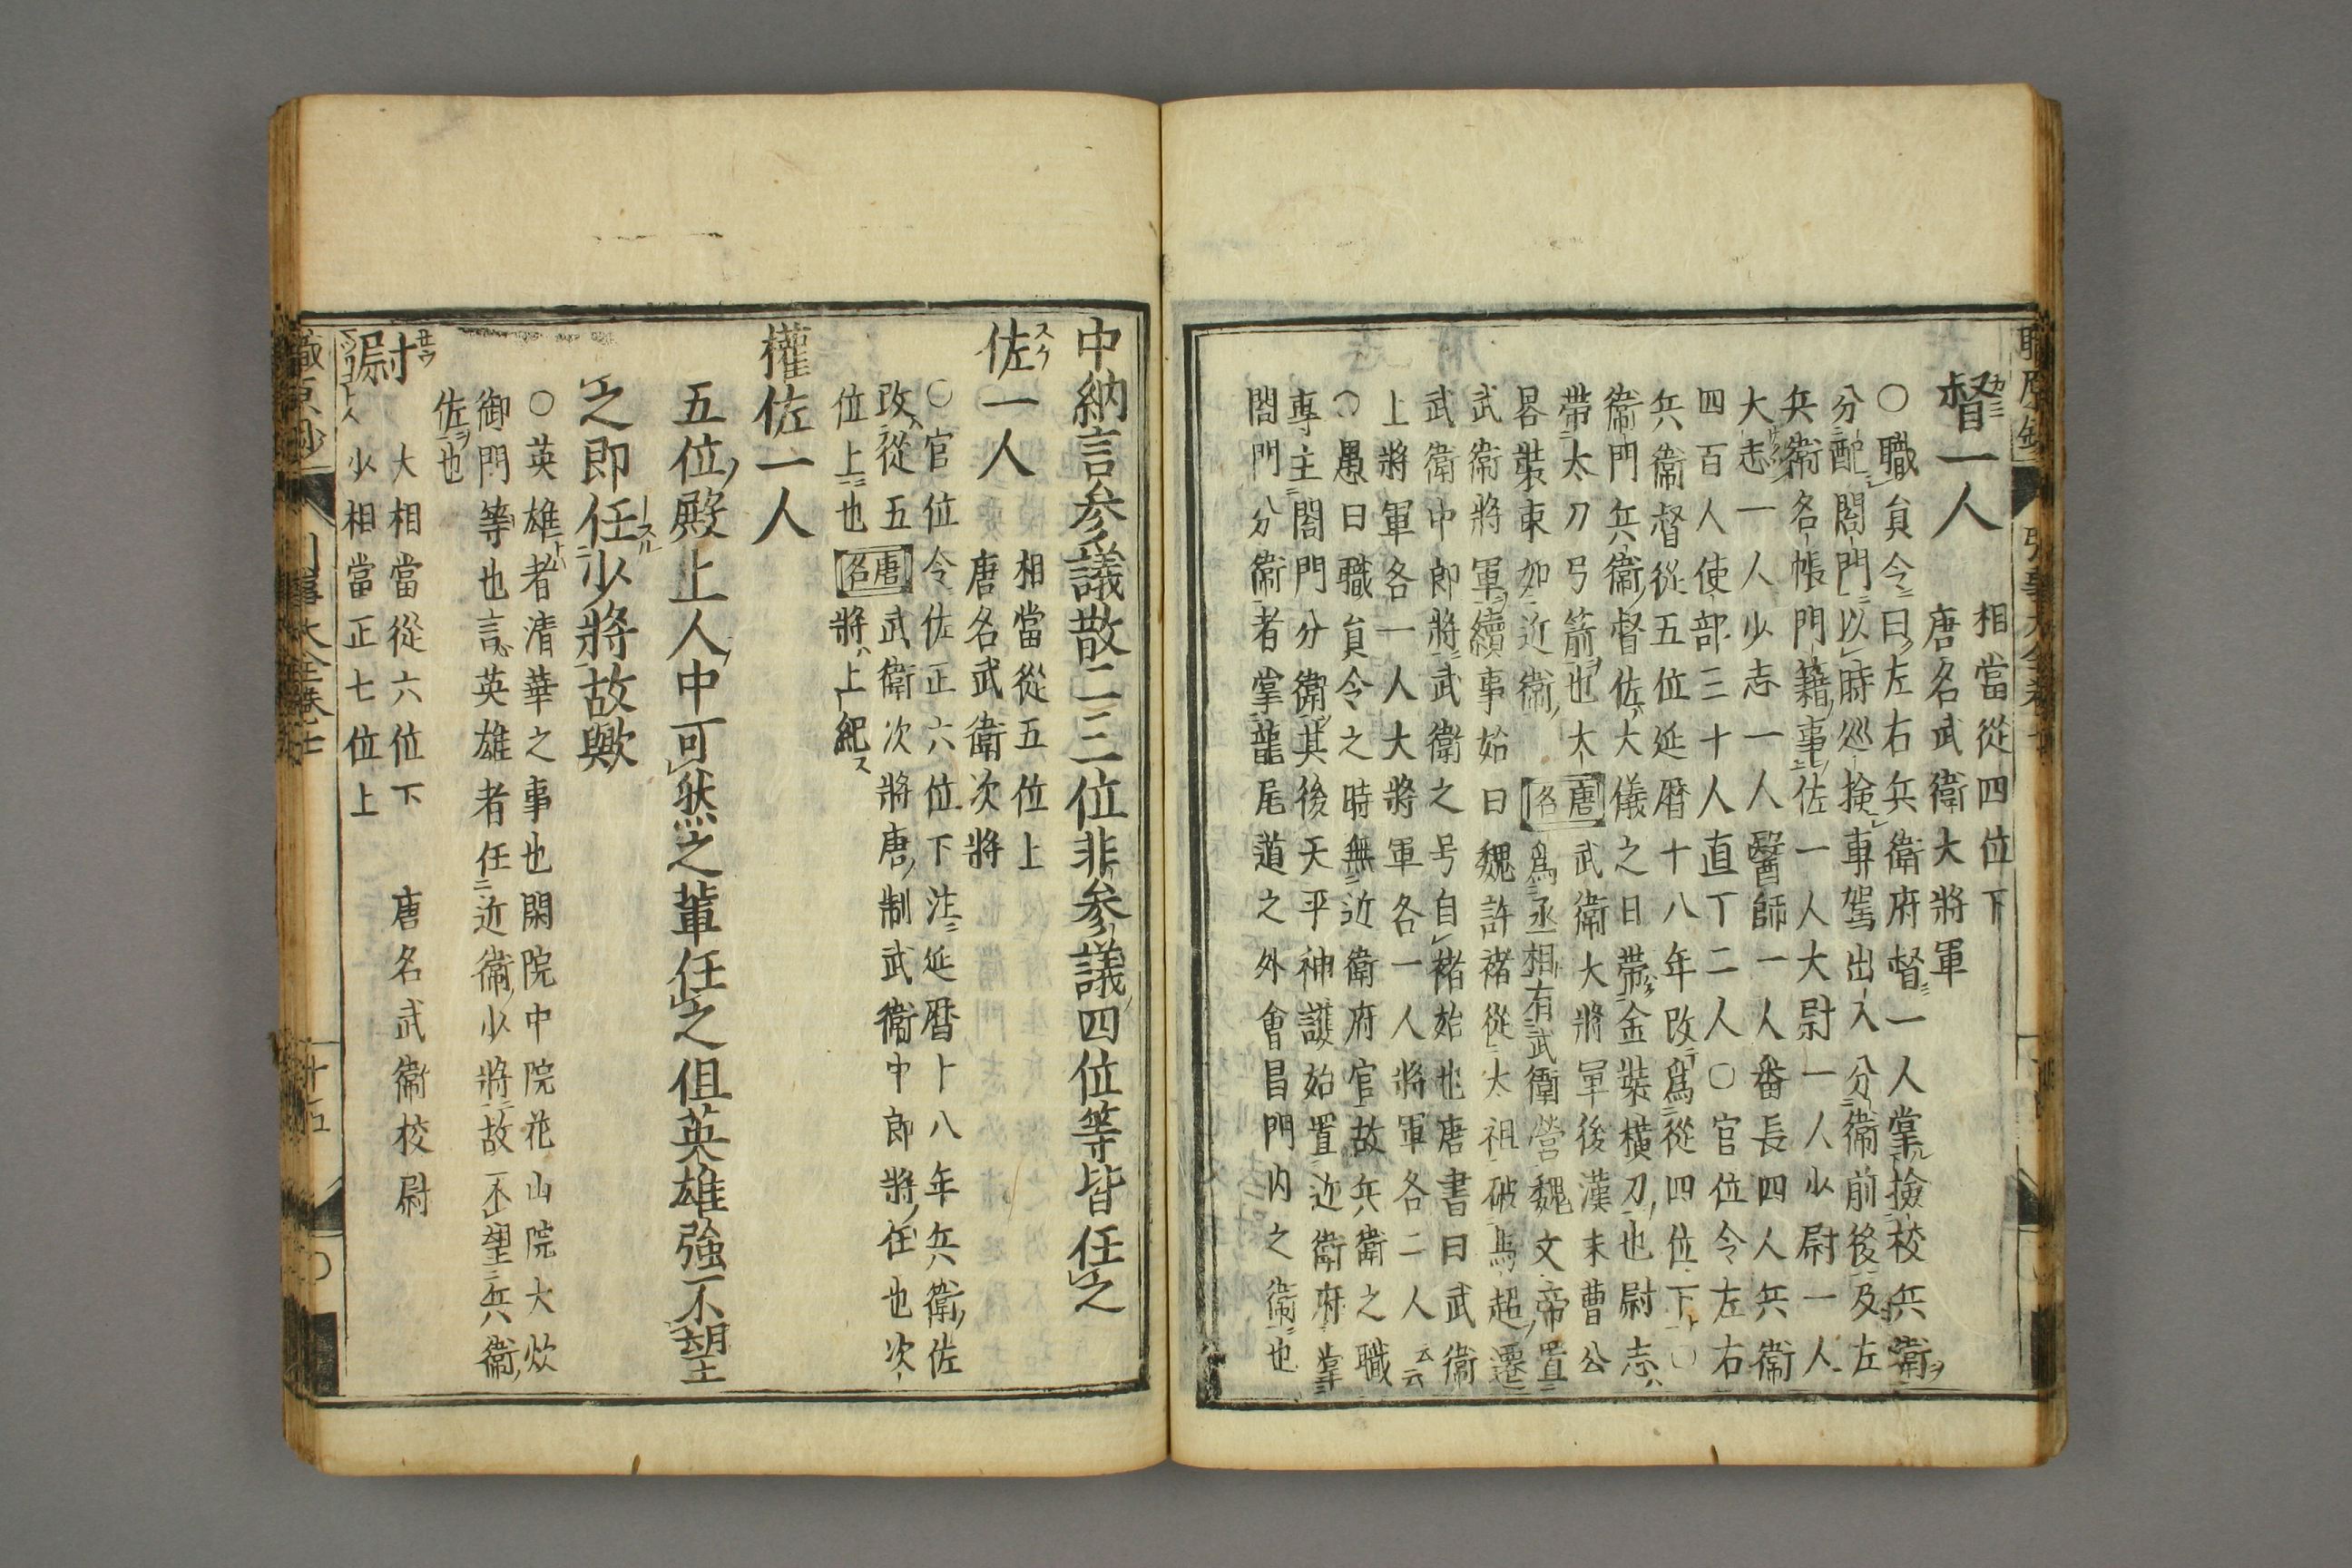 督一人
相當從四位下
唐名武衛大將軍
○職員令曰左右兵衛府督一人掌撿校兵衛
分配閤門以時巡撿車駕出入分衛前後及左
兵衛名帳門籍事佐一人大尉一人少尉一人
大志一人少志一人醫師一人番長四人兵衛
四百人使部三十人直丁二人○官位令左右
兵衛督從五位延暦十八年改爲從四位下○
衛門兵衛督佐大儀之日帶金裝横刀也尉志
帶太刀弓箭也大
畧裝束如近衛
唐名
武衛大將軍後漢末曹公
爲丞相有武衛營魏文帝置
武衛將軍續事始曰魏許褚從太祖破馬超遷
武衛中郎將武衛之号自褚始也唐書曰武衛
上將軍各一人大將軍各一人將軍各二人云云
○愚曰職員令之時無近衛府官故兵衛之職
專主閤門分衛其後天平神護始置近衛府掌
閤門分衛者掌龍尾道之外會昌門内之衛也
中納言参議散二三位非参議四位等皆任之
佐一人
相當從五位上
唐名武衛次將
○官位令佐正六位下注延暦十八年兵衛佐
改從五
位上也
唐名
武衛次將唐制武衛中郎將任也次
將上紀
權佐一人
五位殿上人中可然之輩任之但英雄強不望
之即任少將故歟
○英雄者清華之事也閑院中院花山院大炊
御門等也言英雄者任近衛少將故不望兵衛
佐也
尉
大相當從六位下
少相當正七位上
唐名武衛校尉